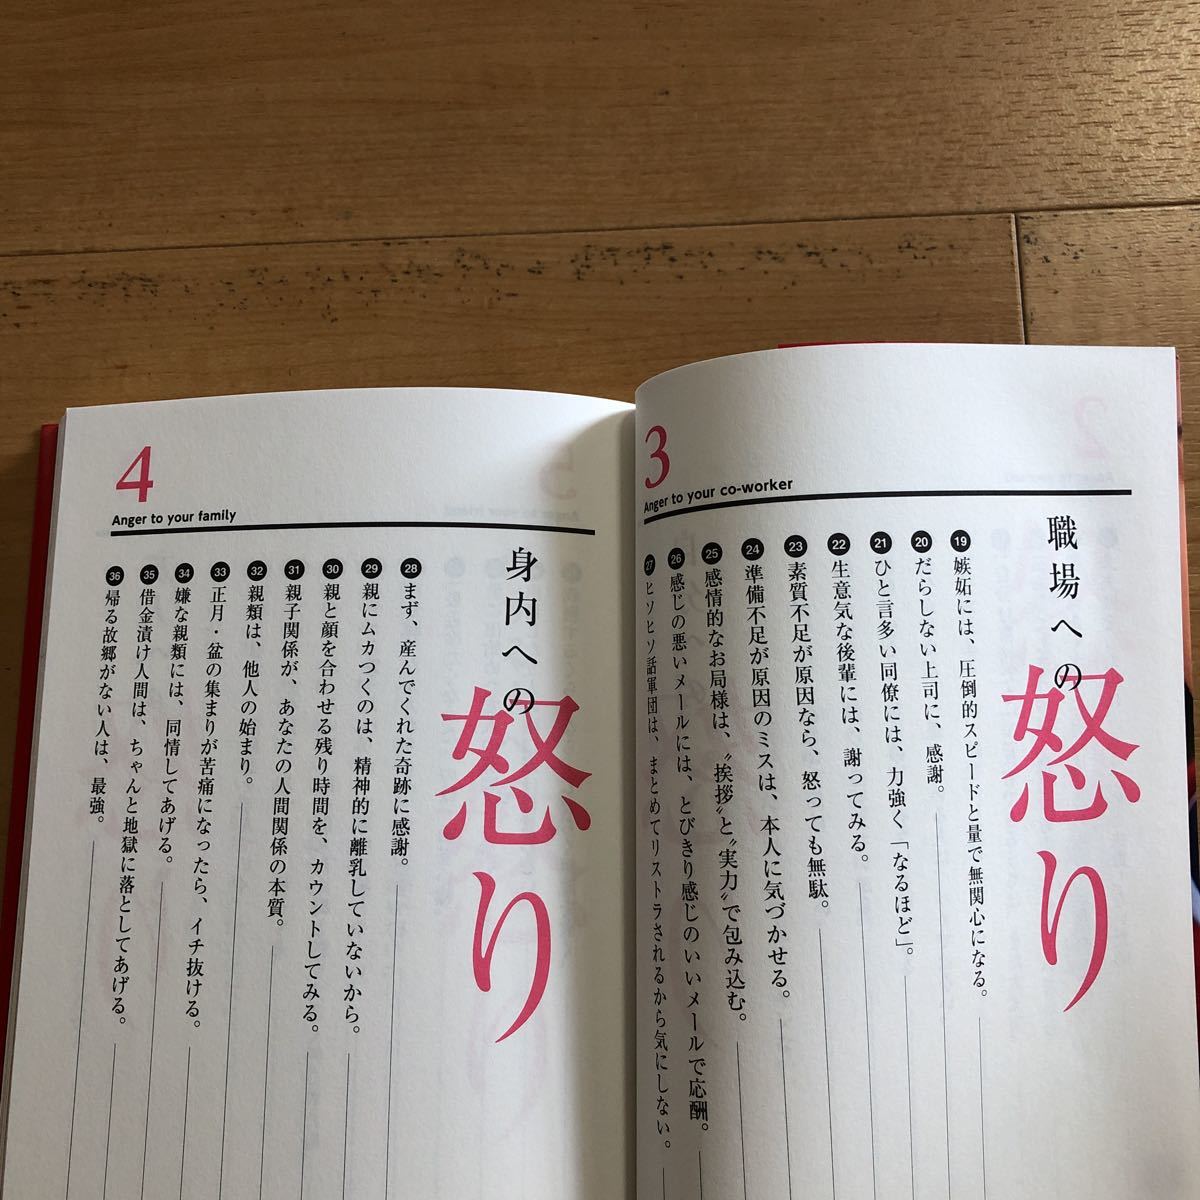 3
Anger to your co-worker
職場への
怒り
19 嫉妬には、圧倒的スピードと量で無関心になる。
20 だらしない上司に、感謝。
21 ひと言多い同僚には、力強く「なるほど」。
22 生意気な後輩には、謝ってみる。
23 素質不足が原因なら、怒っても無駄。
24 準備不足が原因のミスは、本人に気づかせる。
25 感情的なお局様は、〝挨拶〟と〝実力〟で包み込む。
26 感じの悪いメールには、とびきり感じのいいメールで応酬。
27 ヒソヒソ話軍団は、まとめてリストラされるから気にしない。
4
Anger to your family
身内への
怒り
28 まず、産んでくれた奇跡に感謝。
29 親にムカつくのは、精神的に離乳していないから。
30 親と顔を合わせる残り時間を、カウントしてみる。
31 親子関係が、あなたの人間関係の本質。
32 親類は、他人の始まり。
33 正月・盆の集まりが苦痛になったら、イチ抜ける。
34 嫌な親類には、同情してあげる。
35 借金漬け人間は、ちゃんと地獄に落としてあげる。
36 帰る故郷がない人は、最強。